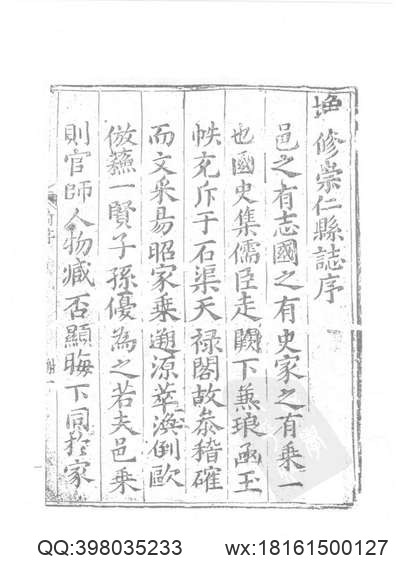 修崇仁縣誌序
邑之有志國之有史家之有乘一
也國史集儒臣走闕下蕉琅函玉
帙充斥于石渠天禄閣故叅稽確
而文采易昭家乘遡源萃渙倒歐
倣蘓一賢子孫優為之若夫邑乘
則官師人物臧否顯晦下同於家
QQ:398035233 wx:18161500127